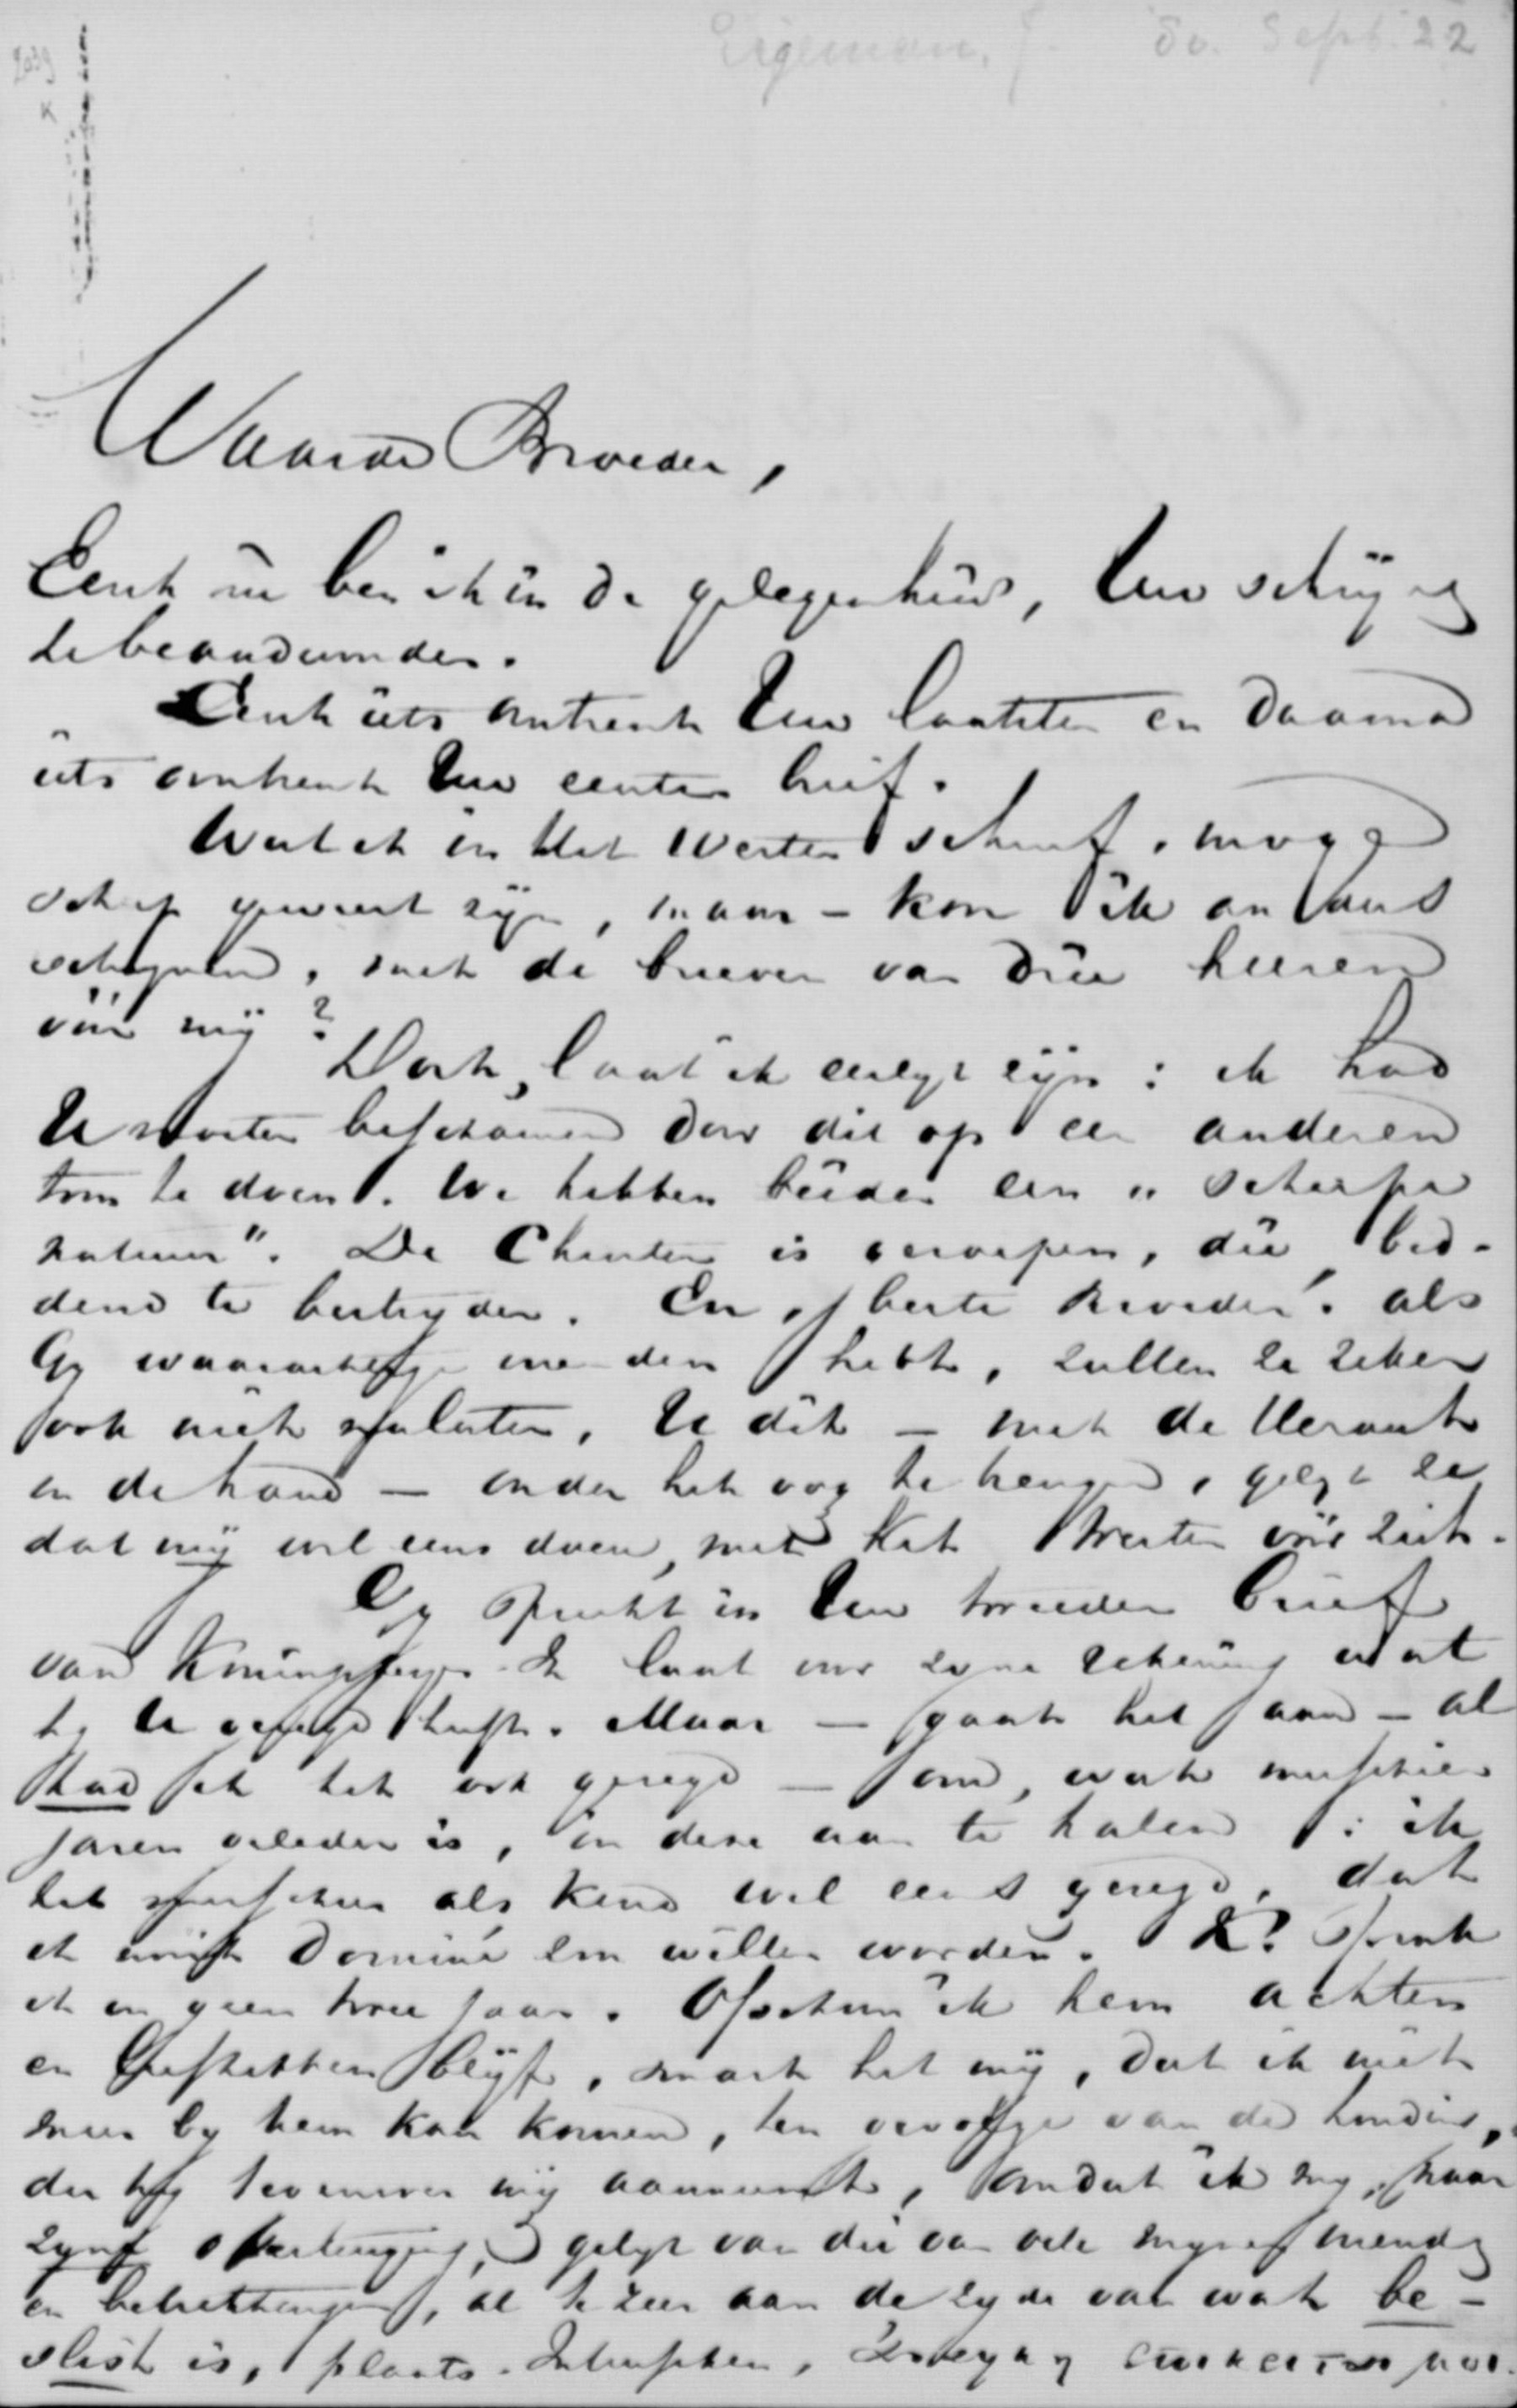 Eigeman, J. 30 Sept. 22
2039
Waarde Broeder,
Eerst nu ben ik in de gelegenheid, Uw schrijven
te beantwoorden.
Eerst iets omtrent Uw laatsten en daarna
iets omtrent Uw eersten brief.
Wat ik in Het Westen schreef, moge
scherp geweest zijn, maar - kon ik anders
schrijven, met de brieven van drie heeren
vóór mij?
Doch, laat ik eerlijk zijn: ik had
U moeten beschamen door dit op een anderen
toon te doen. We hebben beiden een "scherpe
natuur". De Christen is geroepen, die bid-
dend te bestrijden. En, beste Broeder! als
Gij waarachtige vrienden hebt, zullen ze zeker
ook niet nalaten, U dit - met de Heraut
in de hand - onder het oog te brengen, gelijk ze
dat mij wel eens doen, met Het Westen vóór zich.
Gij spreekt in Uw tweeden brief
van Koningsberger. Ik laat voor zijne rekening wat
hij U gezegd heeft. Maar - gaat het aan - al
had ik het ook gezegd - om, wat misschien
jaren geleden is, in deze aan te halen: ik
heb misschien als kind wel eens gezegd, dat
ik nooit Dominé zou willen worden. K? sprak
ik in geen twee jaar. Ofschoon ik hem achten
en liefhebben blijf, smart het mij, dat ik niet
meer bij hem kan komen, ten gevolge van de houding,
die hij tegenover mij aanneemt, omdat ik mij, naar
zijne overtuiging, gelijk van die van vele mijner vrienden
en betrekkingen, al te zeer aan de zijde van wat be-
slist is, plaats. Intusschen,